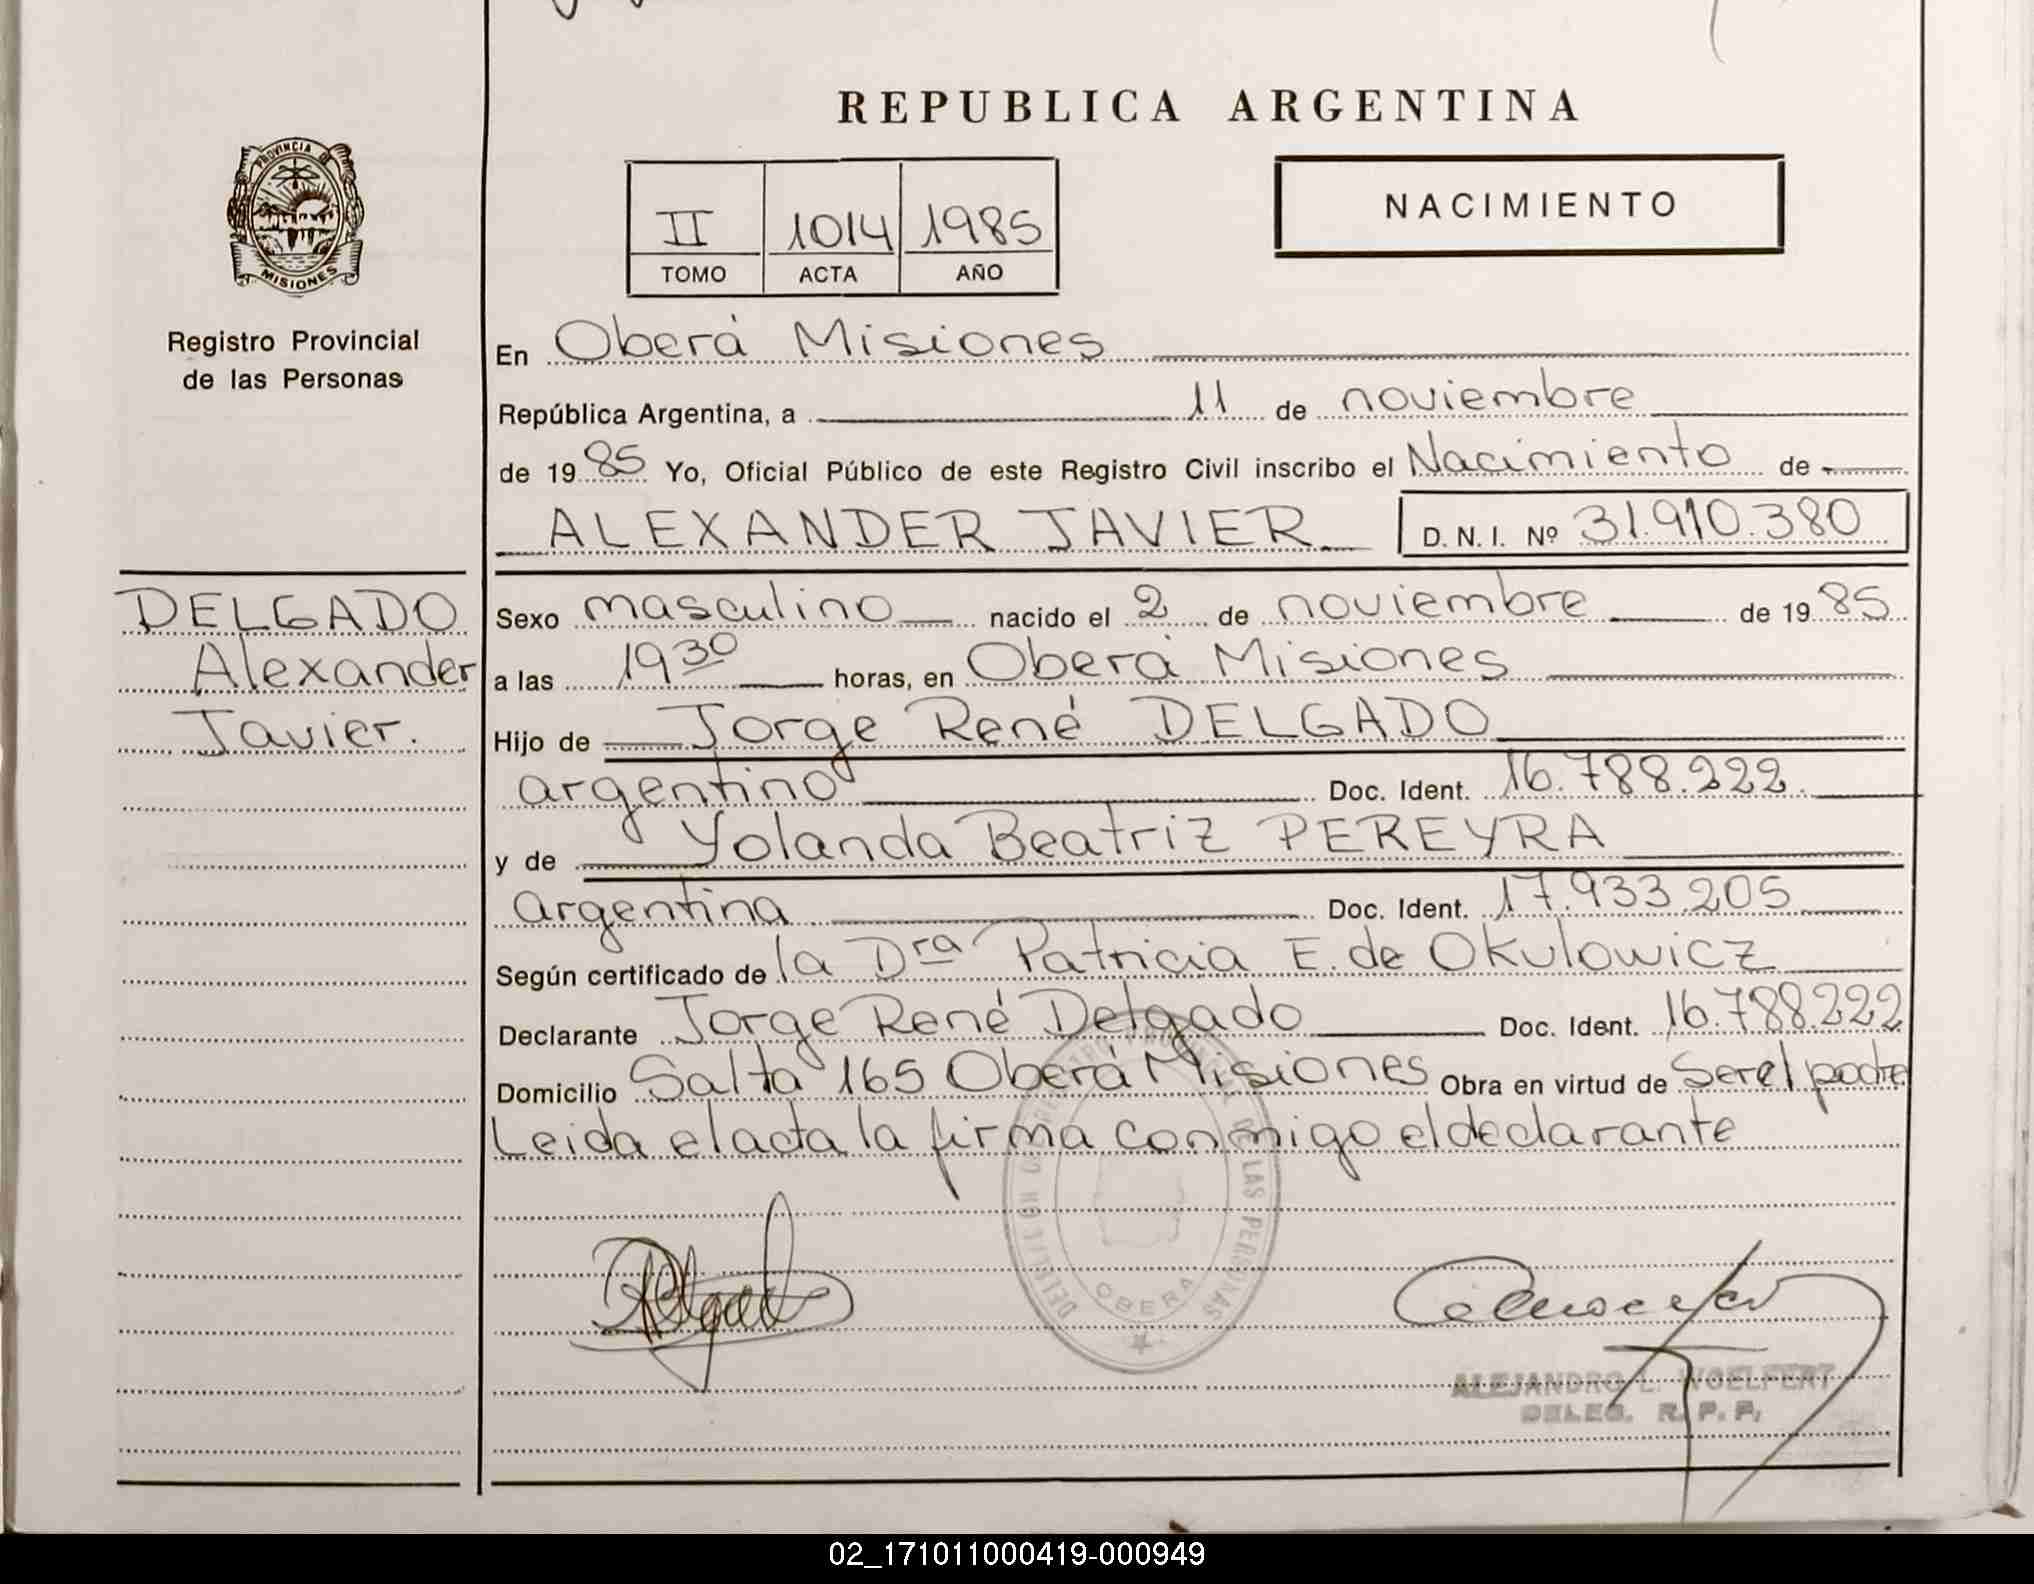 REPUBLICA ARGENTINA
PROVINCIA DE
MISIONES
Registro Provincial
de las Personas
II 1014 1985
TOMO ACTA AÑO
NACIMIENTO
En Oberá Misiones
República Argentina, a 11 de noviembre
de 1985 Yo, Oficial Público de este Registro Civil inscribo el Nacimiento de
ALEXANDER JAVIER D. N. I. Nº 31.910.380
DELGADO
Alexander
Javier.
Sexo masculino nacido el 2 de noviembre de 1985
a las 19 30 horas, en Oberá Misiones
Hijo de Jorge René DELGADO
argentino Doc. Ident. 16.788.222
y de Yolanda Beatriz PEREYRA
argentina Doc. Ident. 17.933.205
Según certificado de la Dra Patricia E. de Okulowicz
Declarante Jorge René Delgado Doc. Ident. 16.788.222
Domicilio Salta 165 Oberá Misiones Obra en virtud de Ser el padre
Leida el acta la firma conmigo el declarante
DE LAS PERSONAS
OBERA
ALEJANDRO L. WOELFERT
DELEG. R. P. P.
02_171011000419-000949